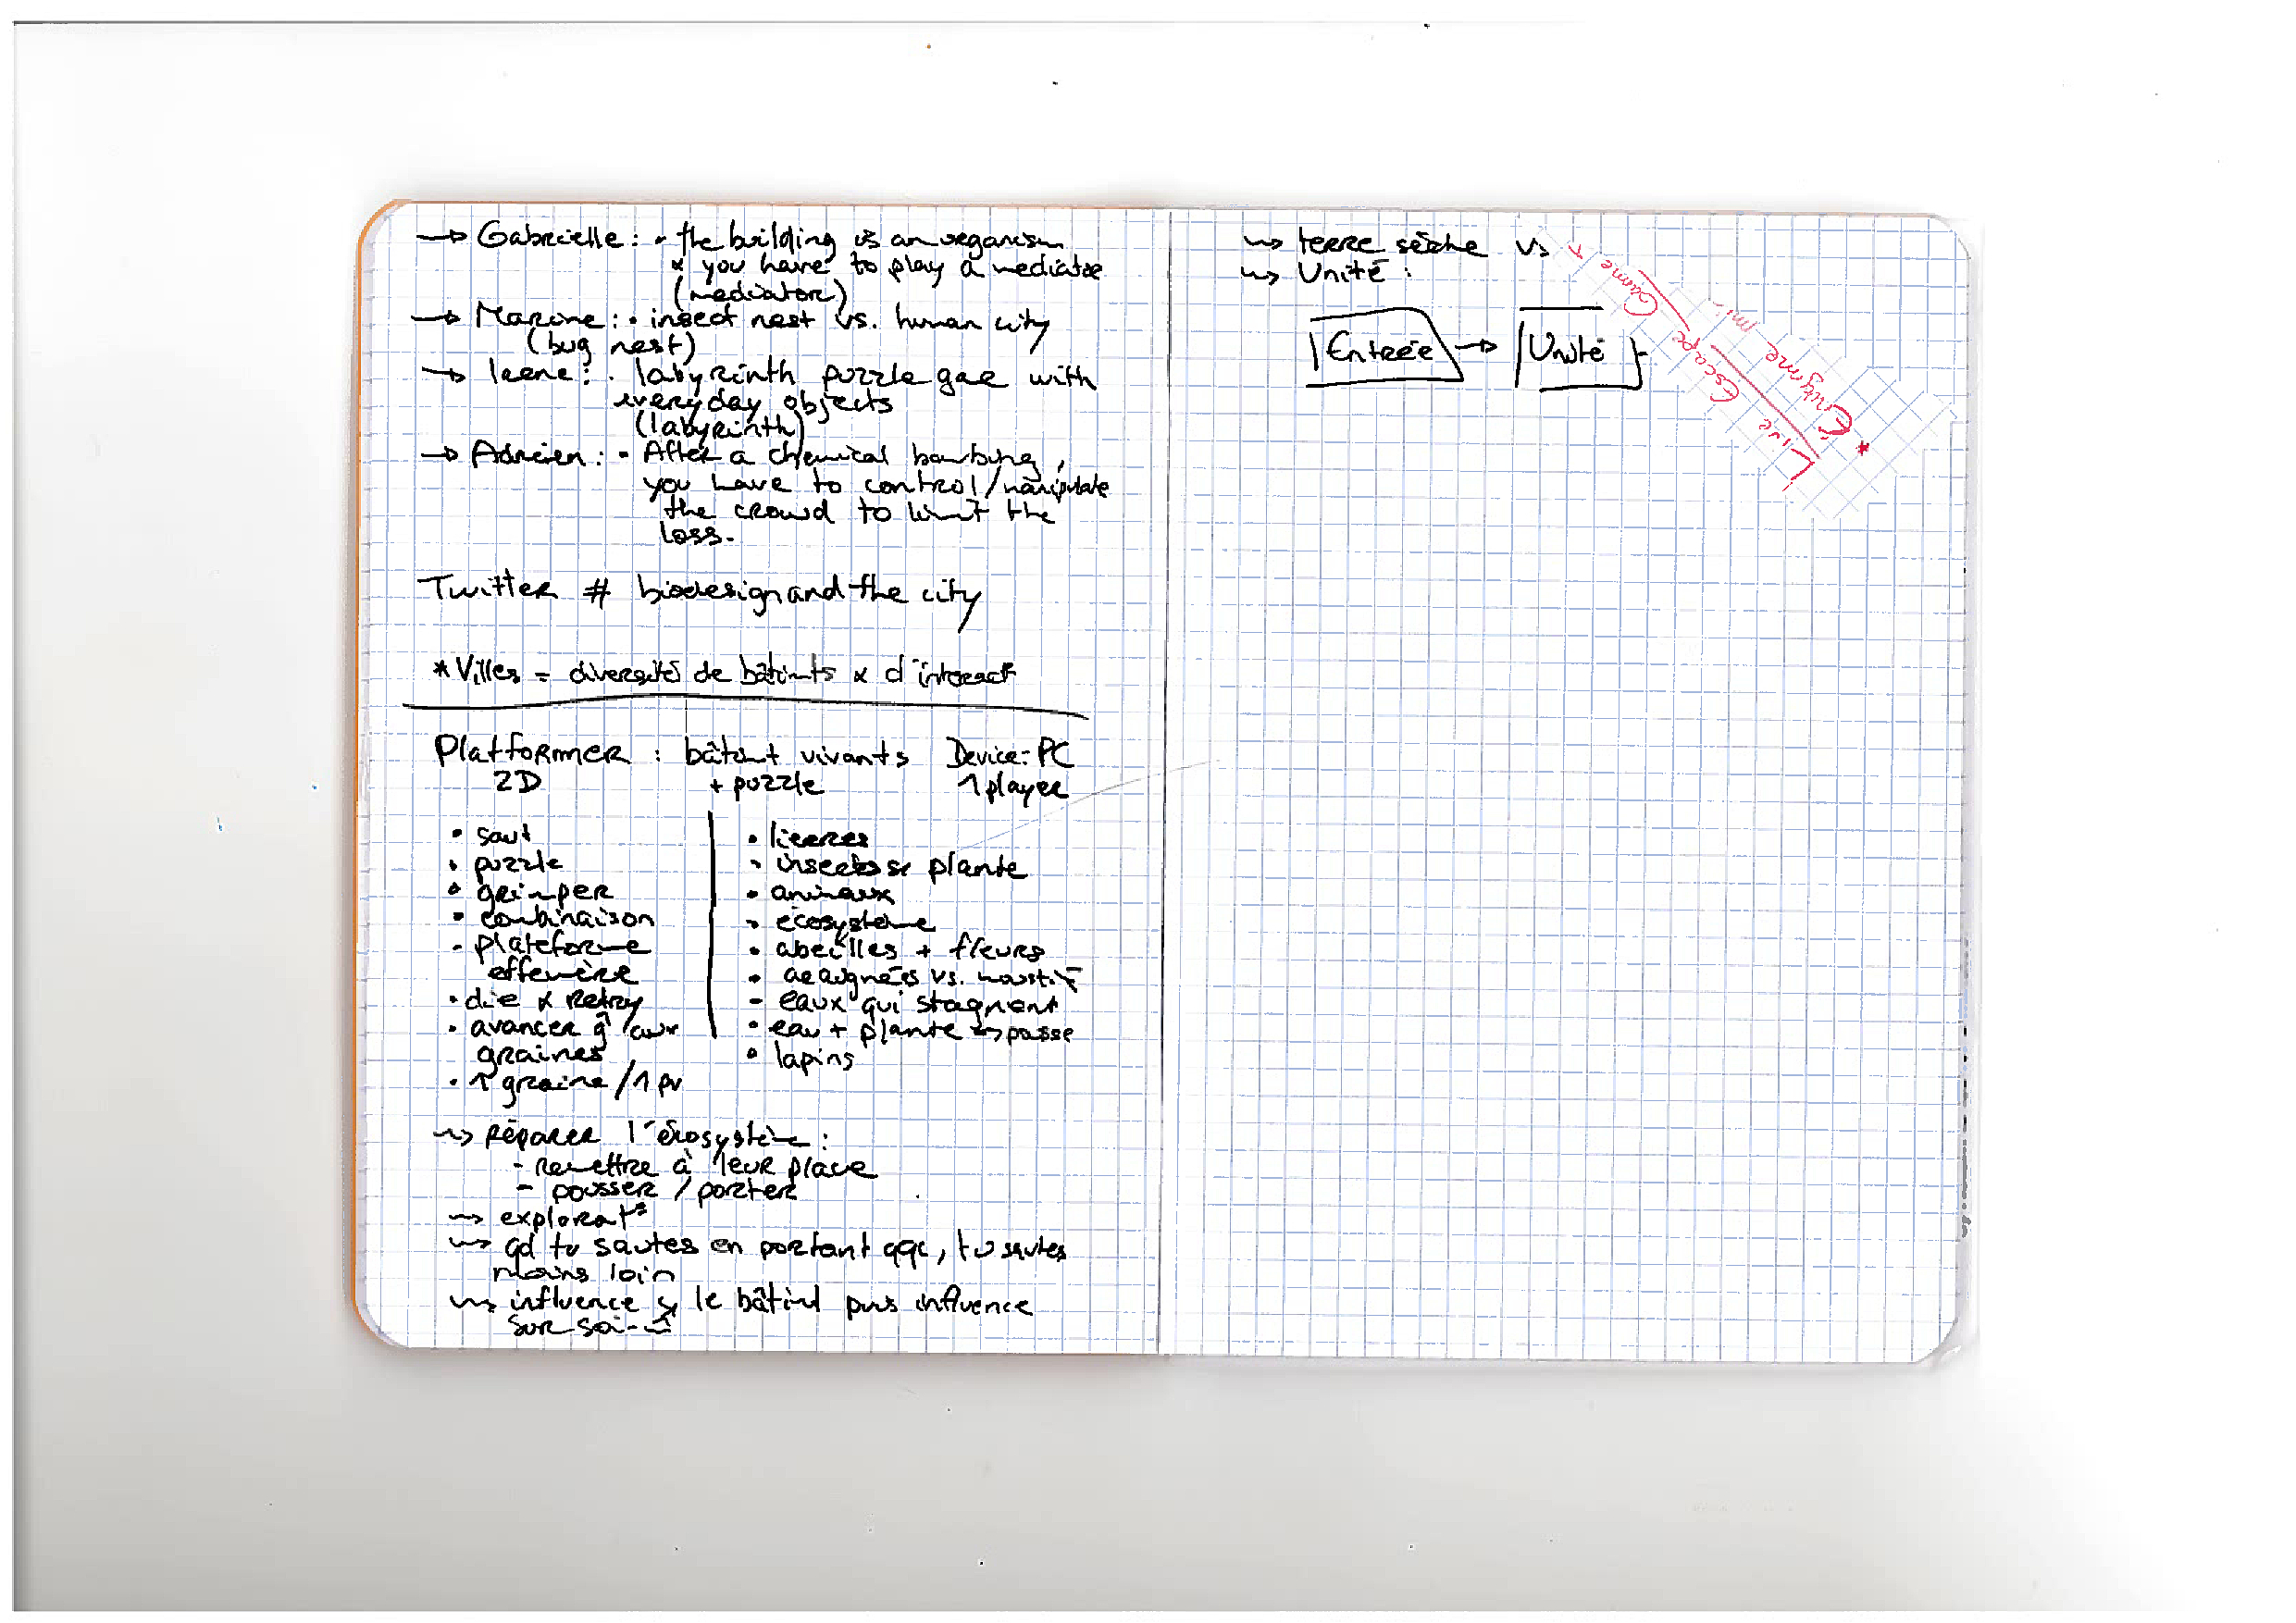 → Gabrielle : • the building is an organism
& you have to play a mediatre
(mediator)
→ Marine : • insect nest vs. human city
(bug nest)
→ Irene : • labyrinth puzzle gae with
everyday objects
(labyrinth)
→ Adrien : • After a chemical bombing,
you have to control/manipulate
the crowd to limit the
loss.
Twitter # biodesignandthecity
* Villes = diversités de bâtimts & d'interact°
Platformer : bâtimt vivants Device: PC
2D + puzzle 1 player
• saut
• puzzle
• grimper
• combinaison
• plateforme
effemère
• die & Retry
• avancer g^ aux
graines
• 1 graine / 1 pv
• lierres
• insectes sr plante
• animaux
• écosystème
• abeilles + fleurs
• araignées vs.
- eaux qui stagnent
• eau + plante → passe
• lapins
↝ Réparer l'écosystème :
- Remettre à leur place
- pousser / porter
↝ explorat°
↝ qd tu sautes en portant qqc, tu sautes
moins loin
↝ influence sr le bâtimt puis influence
sur soi-m̂
↝ terre sèche vs
↝ Unité :
Entrée → Unité
Live Escape Game
* Enigme